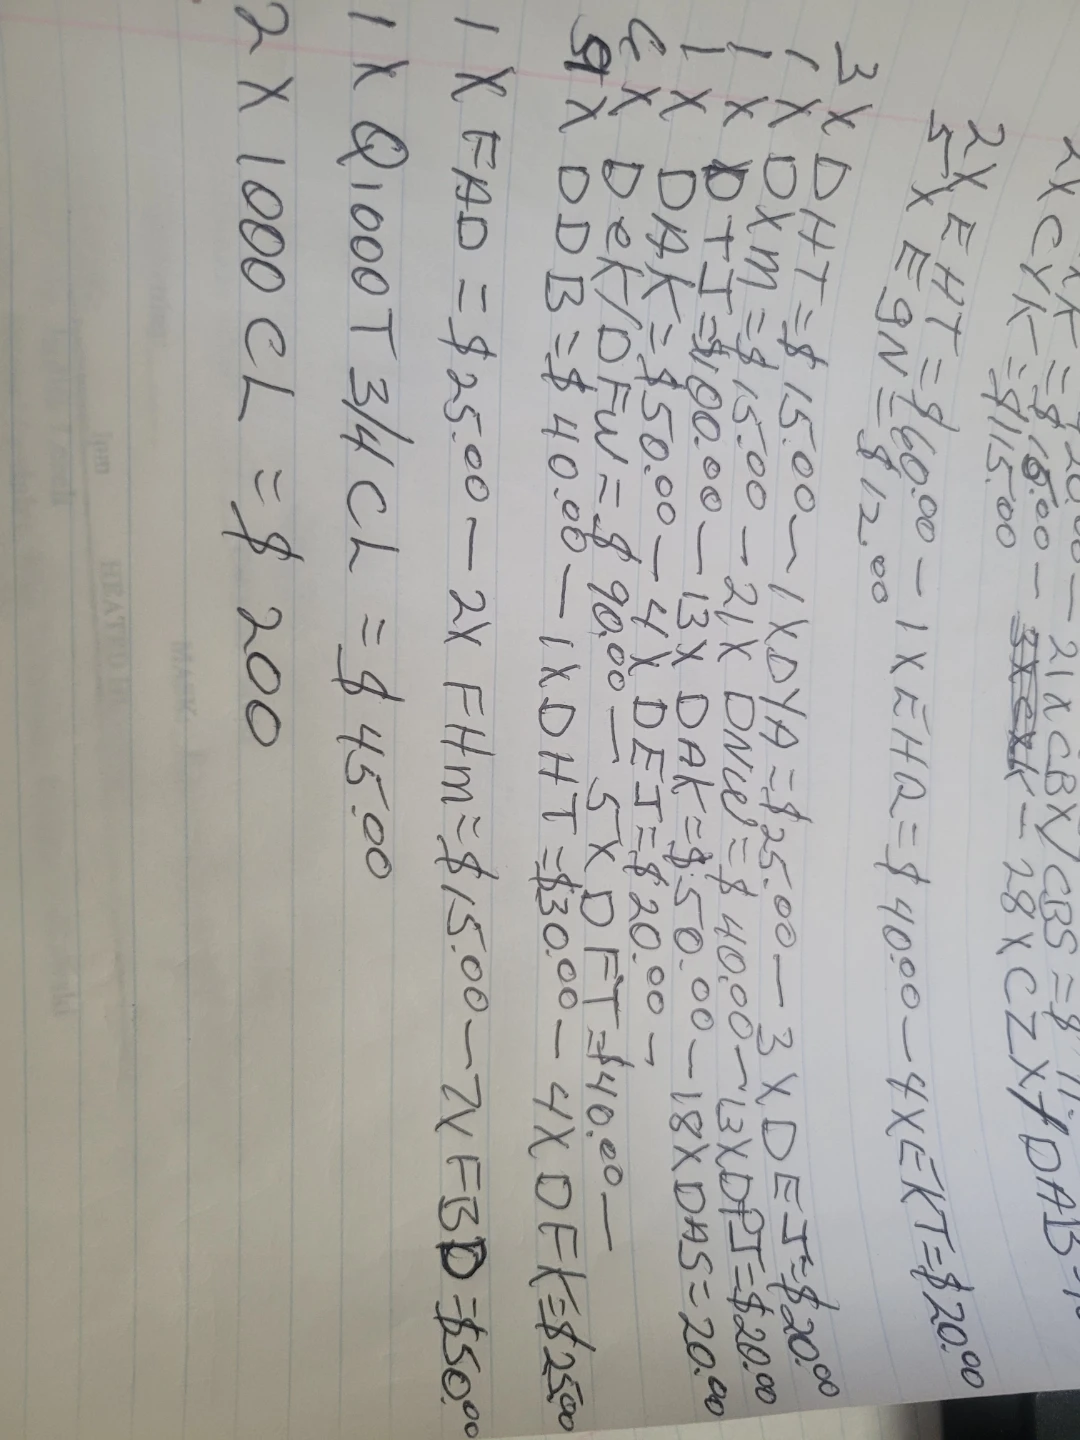 = $20.00 - 21 X CBX/CBS = $
2X CYK = $15.00 - 3XCXK - 28 X CZX/DAB =
$115.00
2X EHT = $60.00 - 1 X EHQ = $40.00 - 4X EKT = $20.00
5 X EGN = $12.00
3X DHT = $15.00 - 1 X DYA = $25.00 - 3 X DEJ = $20.00
1 X DXM = $15.00 - 21X DNW = $40.00 - 13X DPJ = $20.00
1 X DTJ = $100.00 - 13X DAK = $50.00 - 18X DAS = 20.00
1 X DAK = $50.00 - 4X DEJ = $20.00 -
X DEK/DFW = $90.00 - 5X DFT = $40.00 -
X DDB = $40.00 - 1X DHT = $30.00 - 4X DFK = $25.00
1 X FAD = $25.00 - 2X FHM = $15.00 - 2X FBD = $50.00
1 X Q1000T 3/4 CL = $45.00
2 X 1000 CL = $200